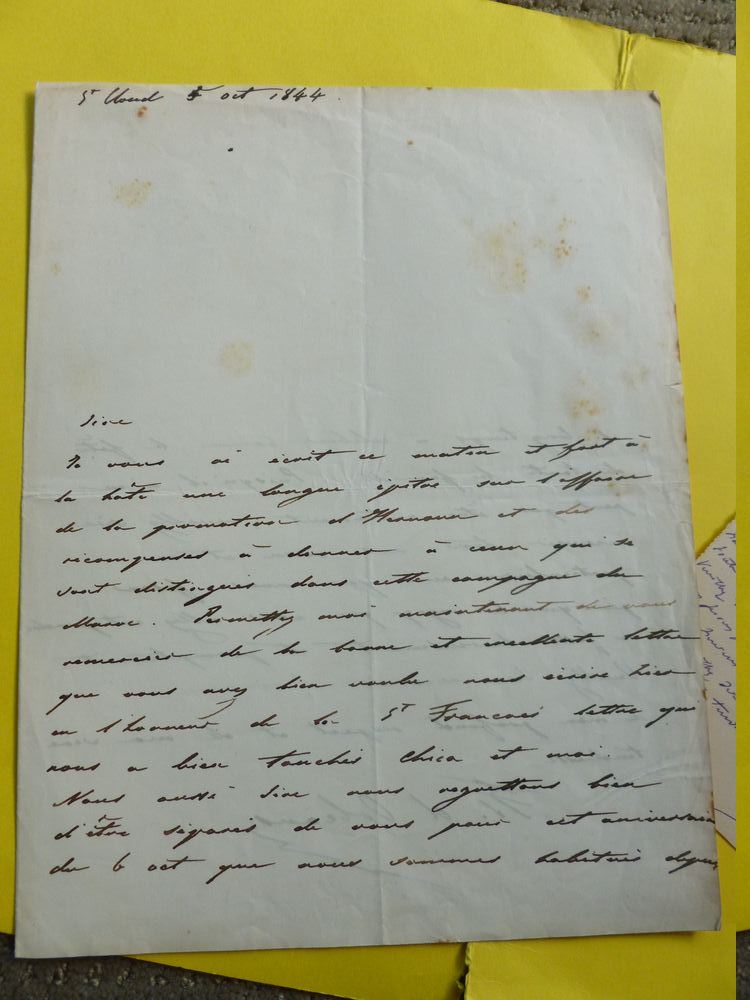 St Cloud 5 oct 1844.
Sire
Je vous ai écrit ce matin et fort à
la hâte une longue épitre sur l'affaire
de la promotion d'Hernoux et des
récompenses à donner à ceux qui se
sont distingués dans cette campagne du
Maroc. Permettez moi maintenant de vous
remercier de la bonne et excellente lettre
que vous avez bien voulu nous écrire hier
en l'honneur de la St François lettre qui
nous a bien touchés Chica et moi.
Nous aussi Sire nous regrettons bien
d'être séparés de vous pour cet aniversaire
du 6 oct que nous sommes habitués depuis